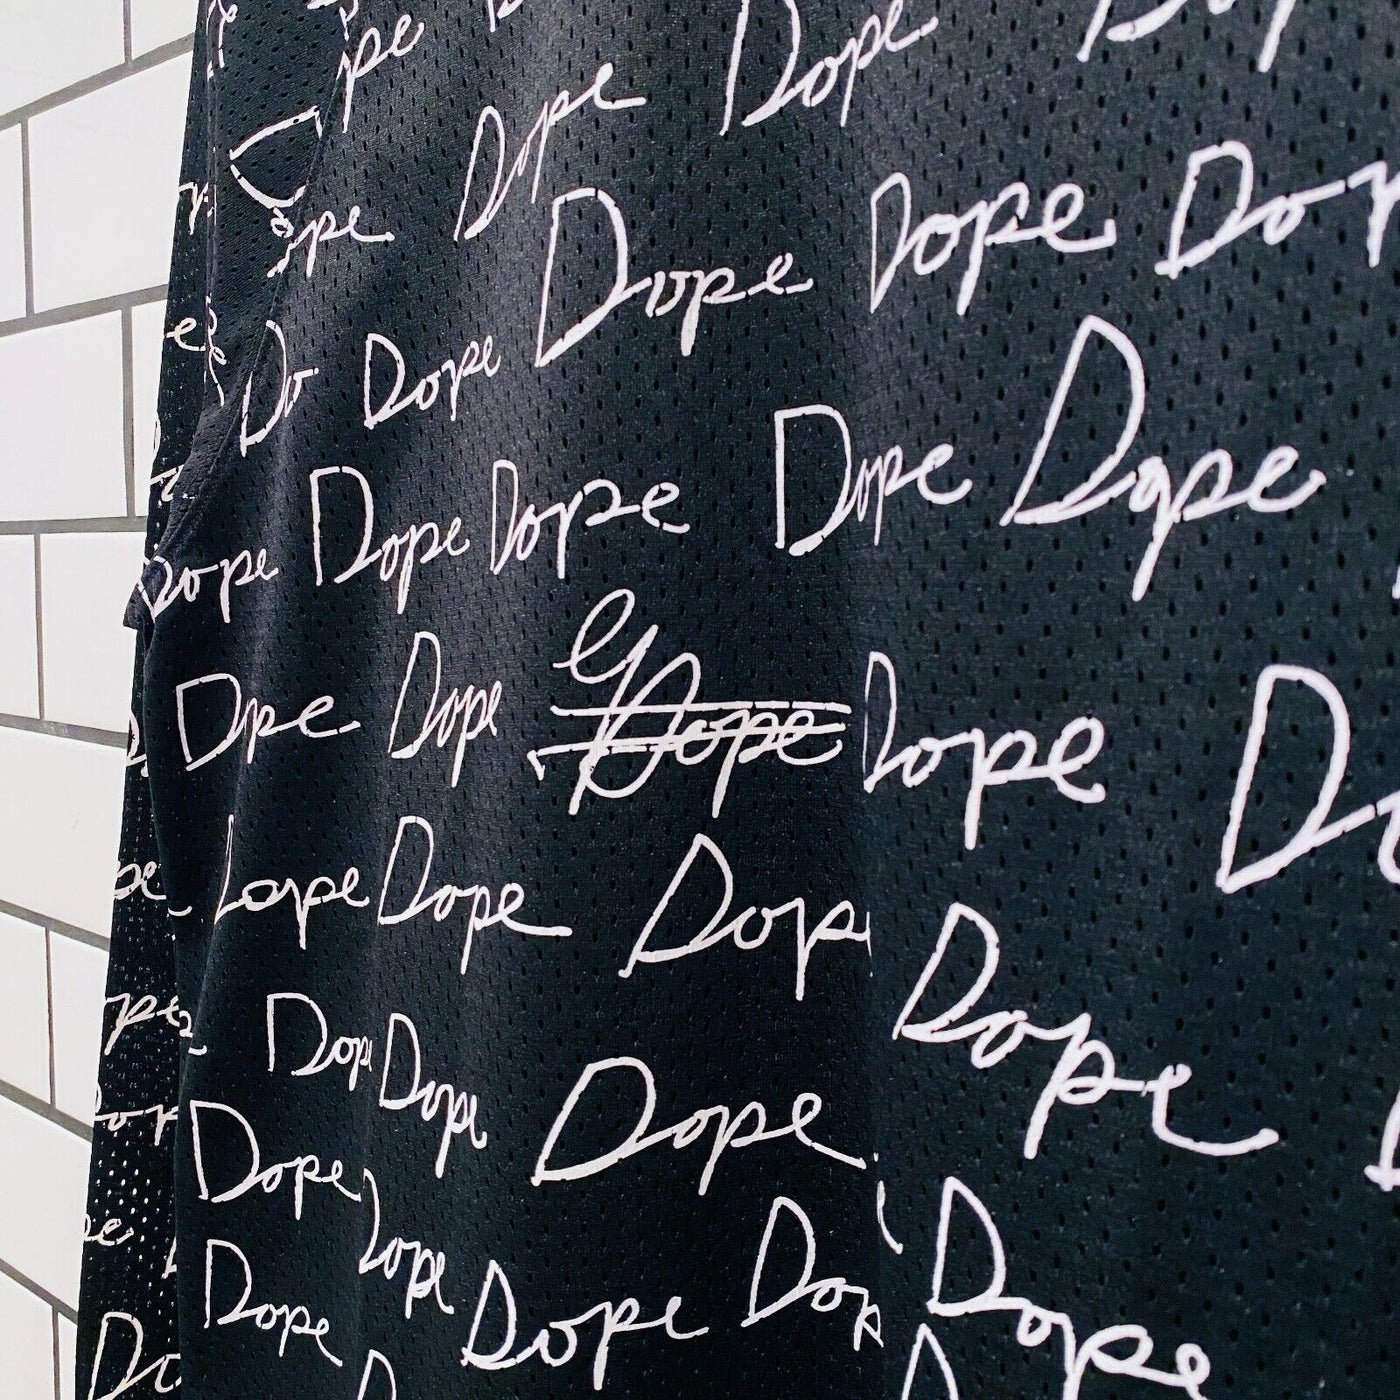 pe Dope Dope
ope Dope Dope Do
Do Dope
Dope Dope
Dope Dope Dope
Dpe Dope Dope Dope D
Dope Dope Dop
Dop Dope Dope Dope
Dope Dope
Dope Dope Dop Dope